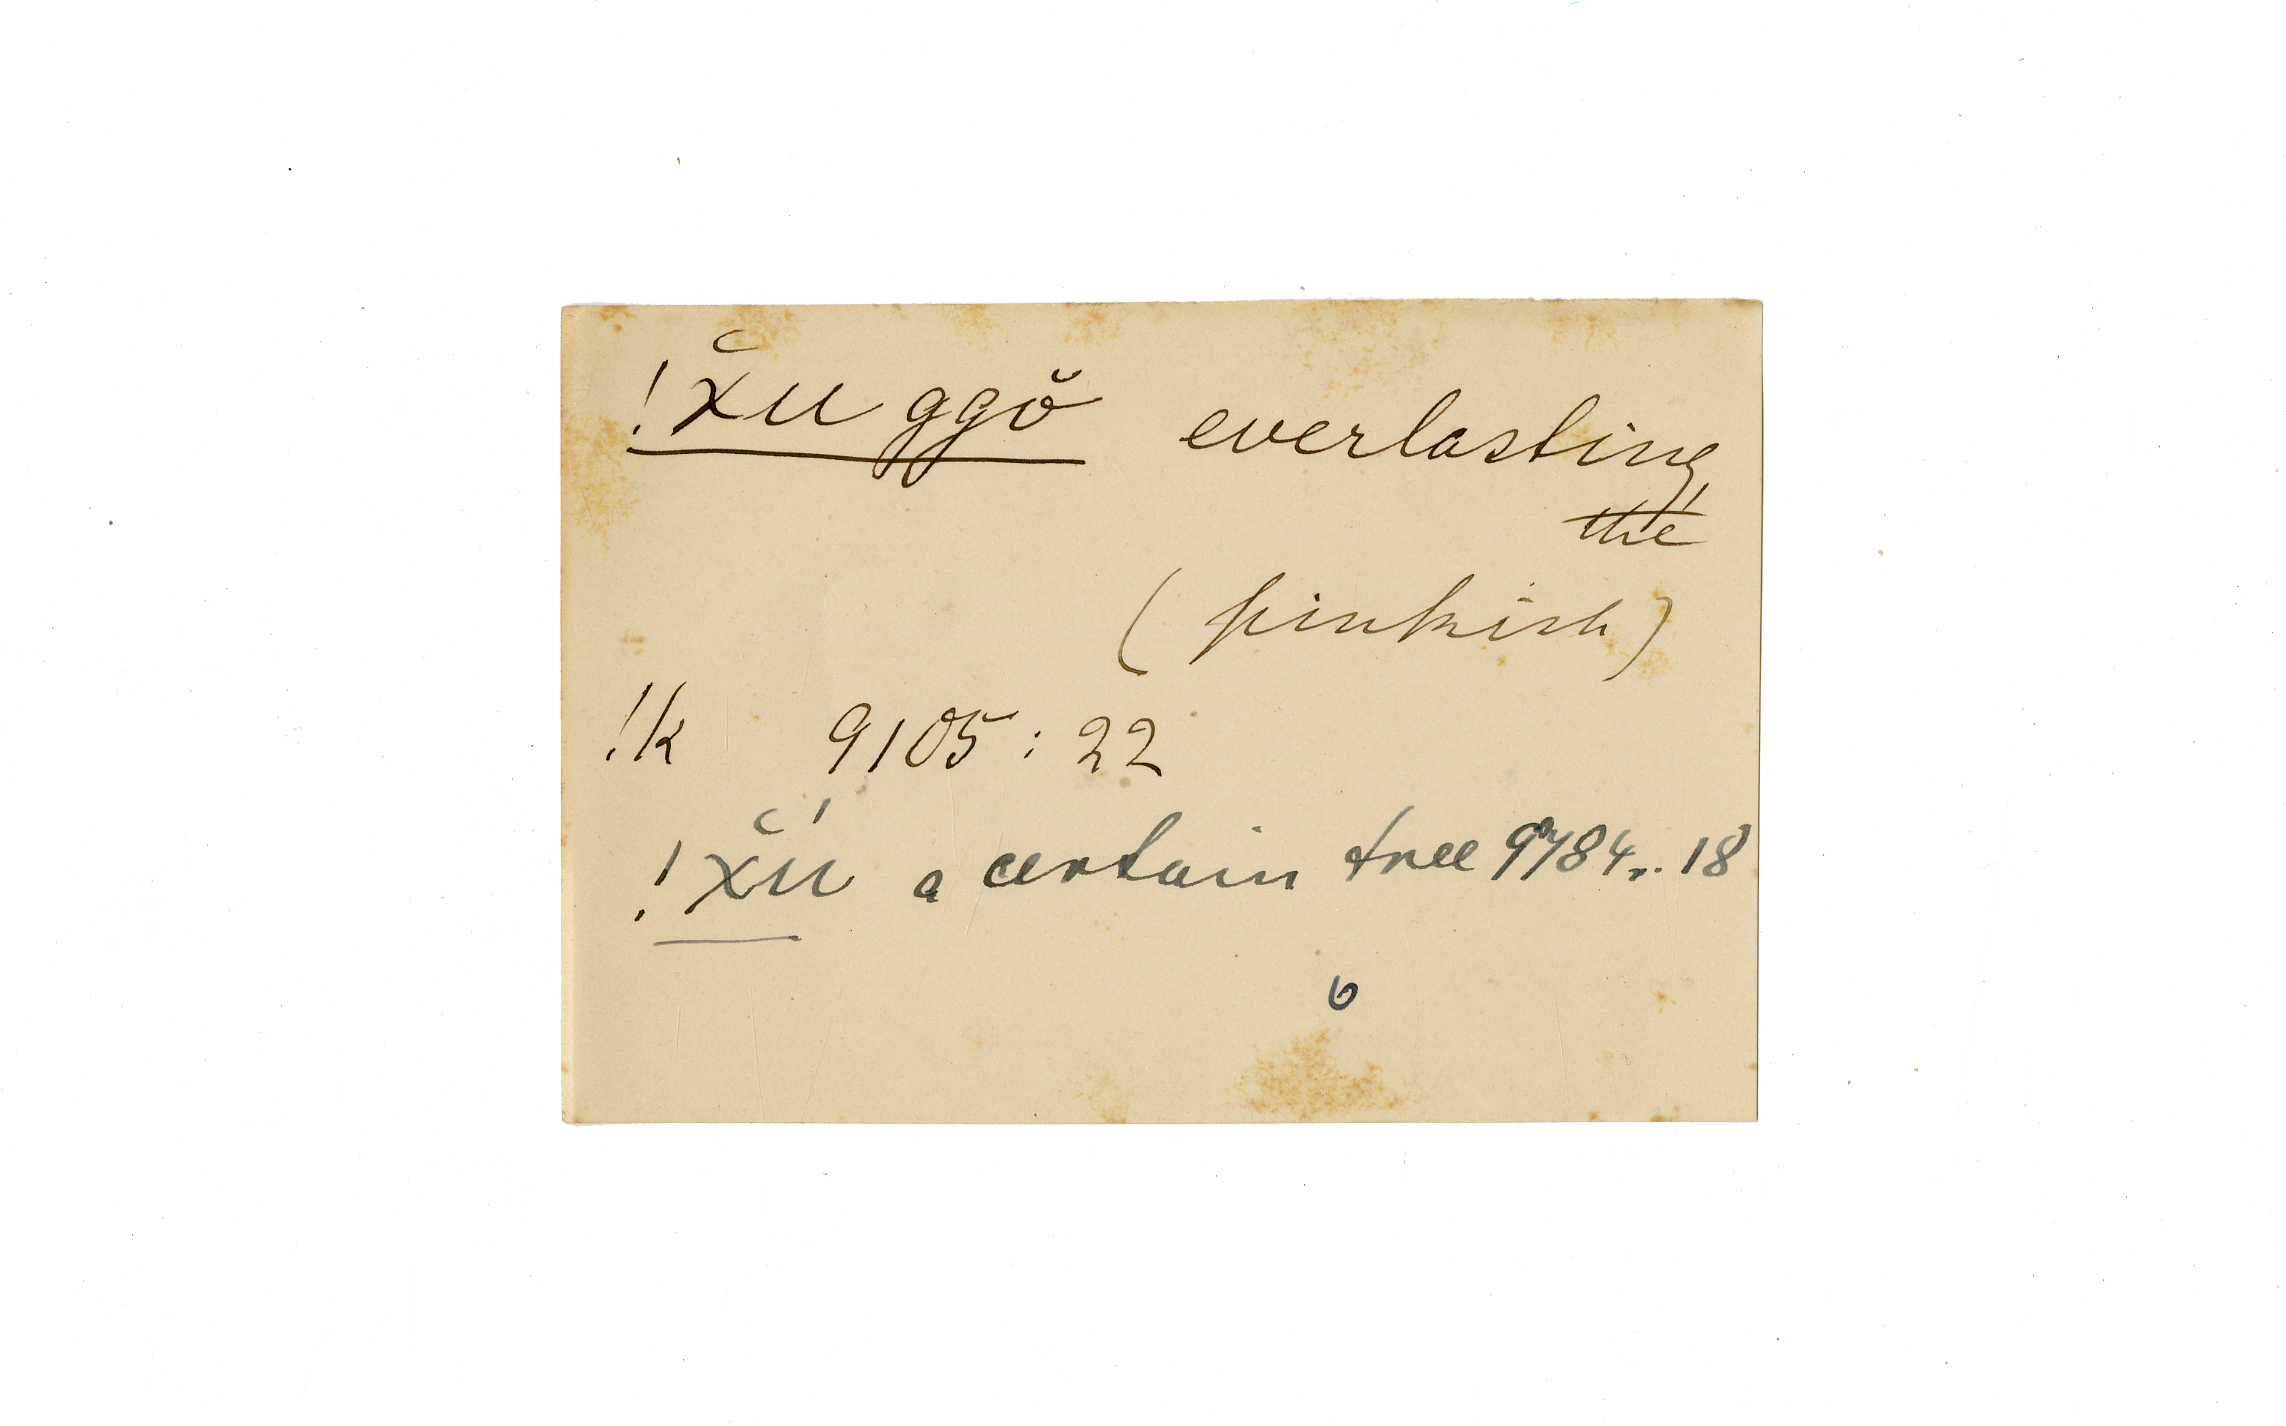 !x̆u ggŏ everlasting
the
(pinkish)
!k 9105 : 22
!x̆ú a certain tree 9784.. 18
6